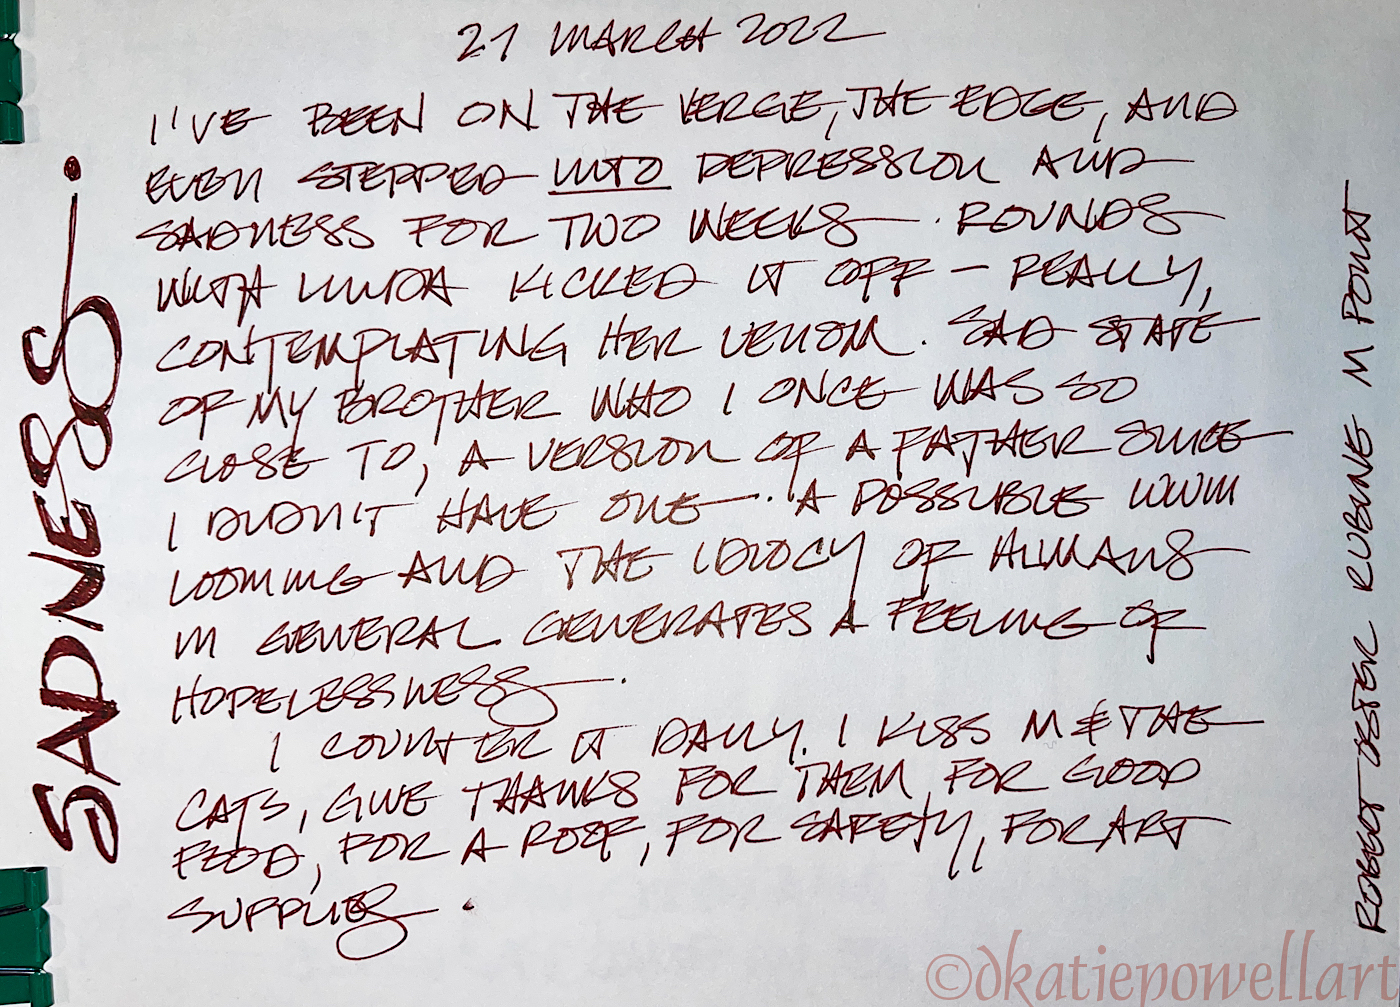 21 MARCH 2022
I'VE BEEN ON THE VERGE, THE EDGE, AND
EVEN STEPPED INTO DEPRESSION AND
SADNESS FOR TWO WEEKS. ROUNDS
WITH LINDA KICKED IT OFF — REALLY,
CONTEMPLATING HER VENOM. SAD STATE
OF MY BROTHER WHO I ONCE WAS SO
CLOSE TO, A VERSION OF A FATHER SINCE
I DIDN'T HAVE ONE. A POSSIBLE WWIII
LOOMING AND THE IDIOCY OF HUMANS
IN GENERAL GENERATES A FEELING OF
HOPELESSNESS.
I COUNTER IT DAILY. I KISS M & THE
CATS, GIVE THANKS FOR THEM, FOR GOOD
FOOD, FOR A ROOF, FOR SAFETY, FOR ART
SUPPLIES.
SADNESS.
ROBERT OSTER RUBINE M POINT
©dkatiepowellart